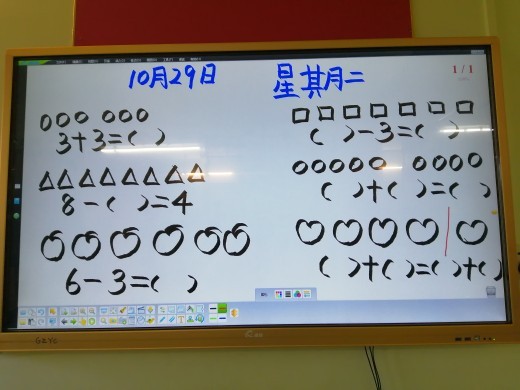 10月29日 星其月二
1/1
3+3=( )
( )-3=( )
8-( )=4
( )+( )=( )
6-3=( )
( )+( )=( )+( )